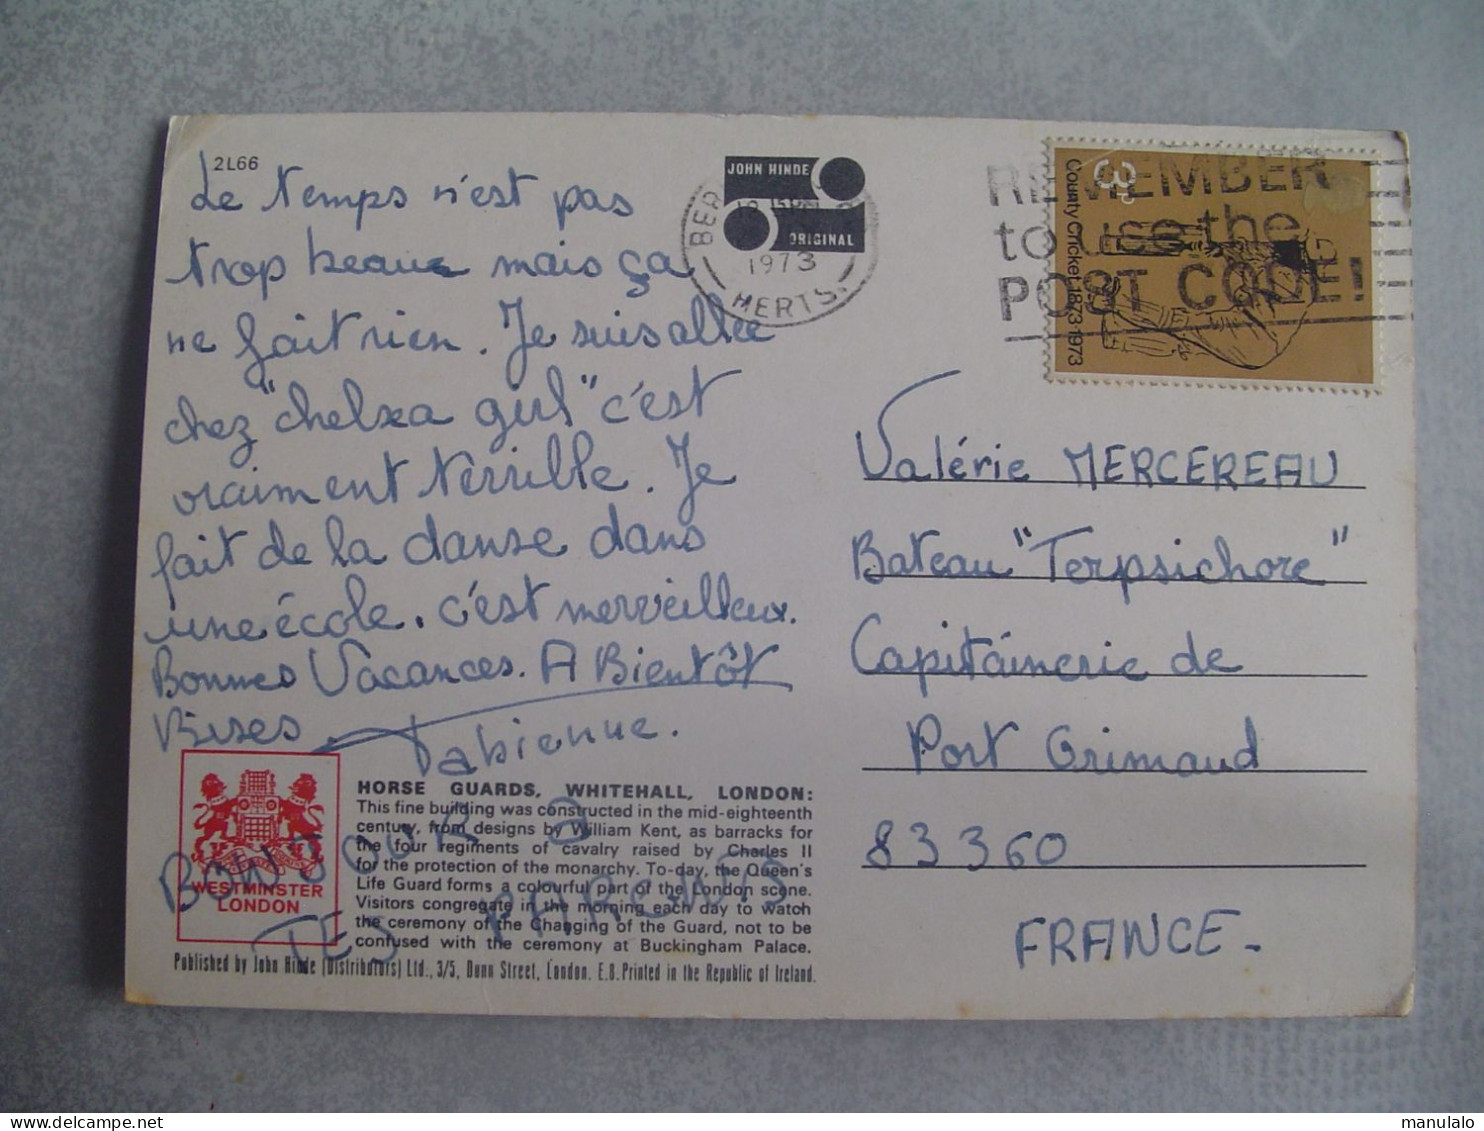 2L66
Le temps n'est pas
trop beau mais ça
ne fait rien. Je suis allée
chez "chelsea girl" c'est
vraiment terrible. Je
fait de la danse dans
une école. c'est merveilleux.
Bonnes Vacances. A Bientôt
Bises
Fabienne.
BONJOUR à
TES PARENTS
JOHN HINDE
ORIGINAL
1973
HERTS.
REMEMBER
to use the
POST CODE!
3
County Cricket 1873-1973
Valérie MERCEREAU
Bateau "Terpsichore"
Capitainerie de
Port Grimaud
83360
FRANCE-
WESTMINSTER
LONDON
HORSE GUARDS, WHITEHALL, LONDON:
This fine building was constructed in the mid-eighteenth
century, from designs by William Kent, as barracks for
the four regiments of cavalry raised by Charles II
for the protection of the monarchy. To-day, the Queen's
Life Guard forms a colourful part of the London scene.
Visitors congregate in the morning each day to watch
the ceremony of the Changing of the Guard, not to be
confused with the ceremony at Buckingham Palace.
Published by John Hinde (Distributors) Ltd., 3/5, Dunn Street, London. E.8. Printed in the Republic of Ireland.
manulalo